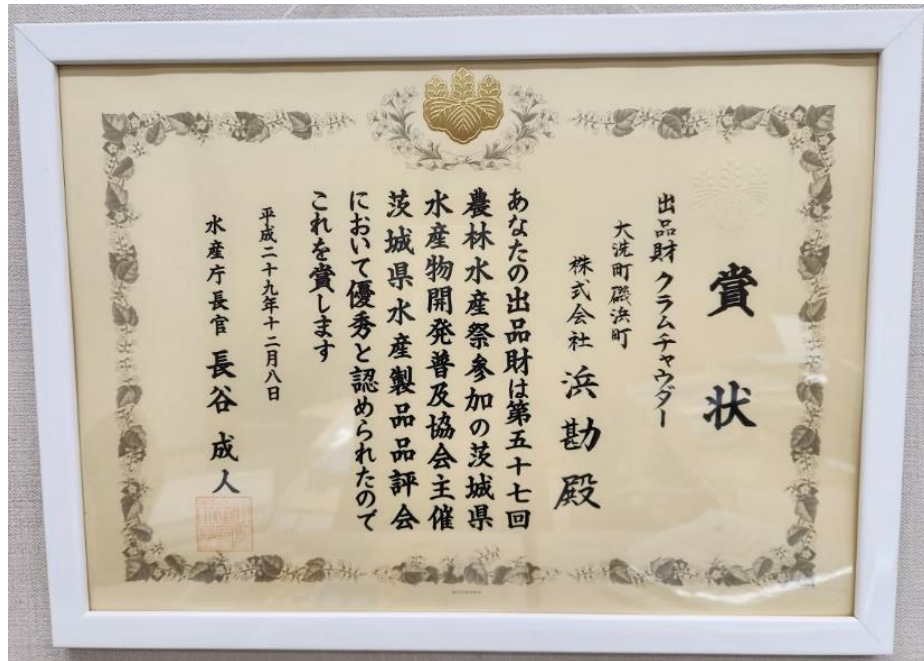 賞状
出品財 クラムチャウダー
大洗町磯浜町
株式会社 浜勘殿
あなたの出品財は第五十七回
農林水産祭参加の茨城県
水産物開発普及協会主催
茨城県水産製品品評会
において優秀と認められたので
これを賞します
平成二十九年十二月八日
水産庁長官 長谷成人